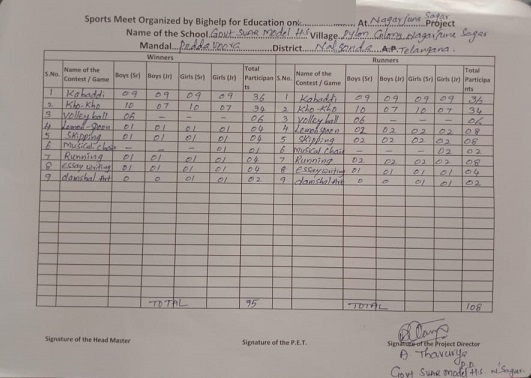 Sports Meet Organized by Bighelp for Education on: At Nagarjuna Sagar Project
Name of the School Govt Suna Model H.S Village Pylon Colony Nagarjuna Sagar
Mandal Peddavoora District Nalgonda A.P Telangana.
Winners Runners
S.No. Name of the Contest / Game Boys (Sr) Boys (Jr) Girls (Sr) Girls (Jr) Total Participants S.No. Name of the Contest / Game Boys (Sr) Boys (Jr) Girls (Sr) Girls (Jr) Total Participants
1 Kabaddi 09 09 09 09 36 1 Kabaddi 09 09 09 09 36
2 Kho-Kho 10 07 10 07 34 2 Kho-Kho 10 07 10 07 34
3 Volley ball 06 - - - 06 3 Volley ball 06 - - - 06
4 Lemon spoon 01 01 01 01 04 4 Lemon spoon 02 02 02 02 08
5 Skipping 01 01 01 01 04 5 Skipping 02 02 02 02 08
6 Musical chair - - - 01 01 6 Musical Chair - - - 02 02
7 Running 01 01 01 01 04 7 Running 02 02 02 02 08
8 Essay writing 01 01 01 01 04 8 Essay writing 01 01 01 01 04
9 Art 0 0 01 01 02 9 Art 0 0 01 01 02
TOTAL 95 TOTAL 108
Signature of the Head Master Signature of the P.E.T. Signature of the Project Director
P.D
Govt Suna Model H.S N'Sagar.